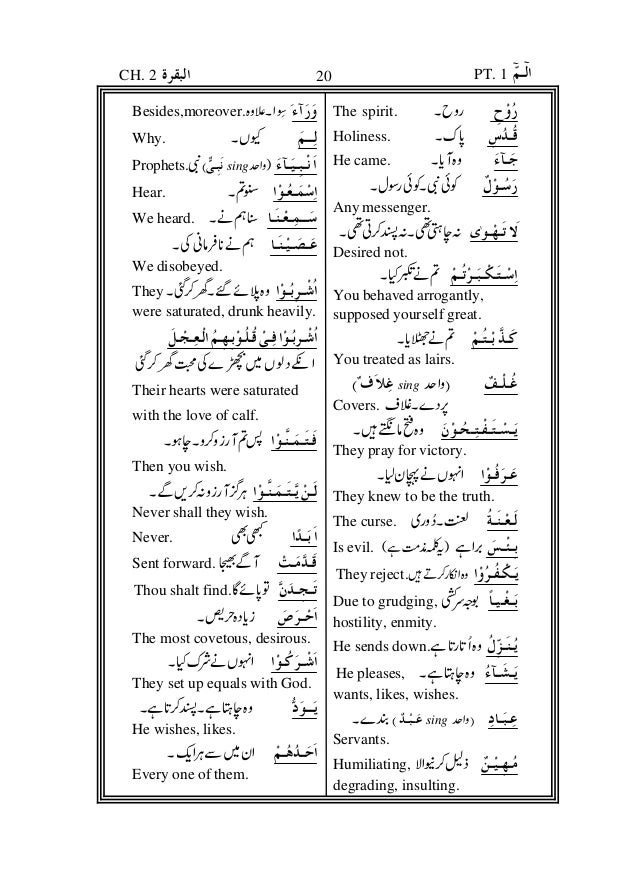 PT. 1 الٓمّٓ 20 CH. 2 البقرة
رُوْحِ روح۔ The spirit.
قُدُسِ پاک۔ Holiness.
جَآءَ وہ آیا۔ He came.
رَسُوْلٌ کوئی نبی۔ کوئی رسول۔
Any messenger.
لَا تَهْوٰی نہ چاہتی تھی۔ نہ پسند کرتی تھی۔
Desired not.
اِسْتَكْبَرْتُمْ تم نے تکبر کیا۔
You behaved arrogantly,
supposed yourself great.
كَذَّبْتُمْ تم نے جھٹلایا۔
You treated as lairs.
غُلْفٌ (واحد sing غِلَافٌ)
پردے۔ غلاف Covers.
يَسْتَفْتِحُوْنَ وہ فتح مانگتے ہیں۔
They pray for victory.
عَرَفُوْا انہوں نے پہچان لیا۔
They knew to be the truth.
لَعْنَةُ لعنت۔ دُوری The curse.
بِئْسَ برا ہے (یہ کلمہ مذمت ہے) Is evil.
يَكْفُرُوْا وہ انکار کرتے ہیں. They reject.
بَغْیاً بوجہ سرکشی Due to grudging,
hostility, enmity.
يُنَزِّلُ وہ اُتارتا ہے He sends down.
يَشَآءُ وہ چاہتا ہے۔ He pleases,
wants, likes, wishes.
عِبَادِ (واحد sing عَبْدٌ) بندے۔
Servants.
مُهِيْنٌ ذلیل کرنیوالا Humiliating,
degrading, insulting.
وَرَآءَ سِوا۔ علاوہ Besides,moreover.
لِمَ کیوں۔ Why.
اَنْبِيَآءَ (واحد sing نَبِیٌّ) نبی Prophets.
اِسْمَعُوْا سنو تم۔ Hear.
سَمِعْنَا سنا ہم نے۔ We heard.
عَصَيْنَا ہم نے نافرمانی کی۔
We disobeyed.
اُشْرِبُوْا وہ پلائے گئے۔ گھر کر گئی۔ They
were saturated, drunk heavily.
اُشْرِبُوْا فِیْ قُلُوْبِهِمُ الْعِجْلَ
انکے دلوں میں بچھڑے کی محبت گھر کر گئی
Their hearts were saturated
with the love of calf.
فَتَمَنَّوُا پس تم آرزو کرو۔ چاہو۔
Then you wish.
لَنْ يَّتَمَنَّوْا ہرگز آرزو نہ کریں گے۔
Never shall they wish.
اَبَدًا کبھی بھی Never.
قَدَّمَتْ آگے بھیجا Sent forward.
تَجِدَنَّ تو پائے گا Thou shalt find.
اَحْرَصَ زیادہ حریص۔
The most covetous, desirous.
اَشْرَكُوْا انہوں نے شرک کیا۔
They set up equals with God.
يَوَدُّ وہ چاہتا ہے۔ پسند کرتا ہے۔
He wishes, likes.
اَحَدُهُمْ ان میں سے ہر ایک۔
Every one of them.